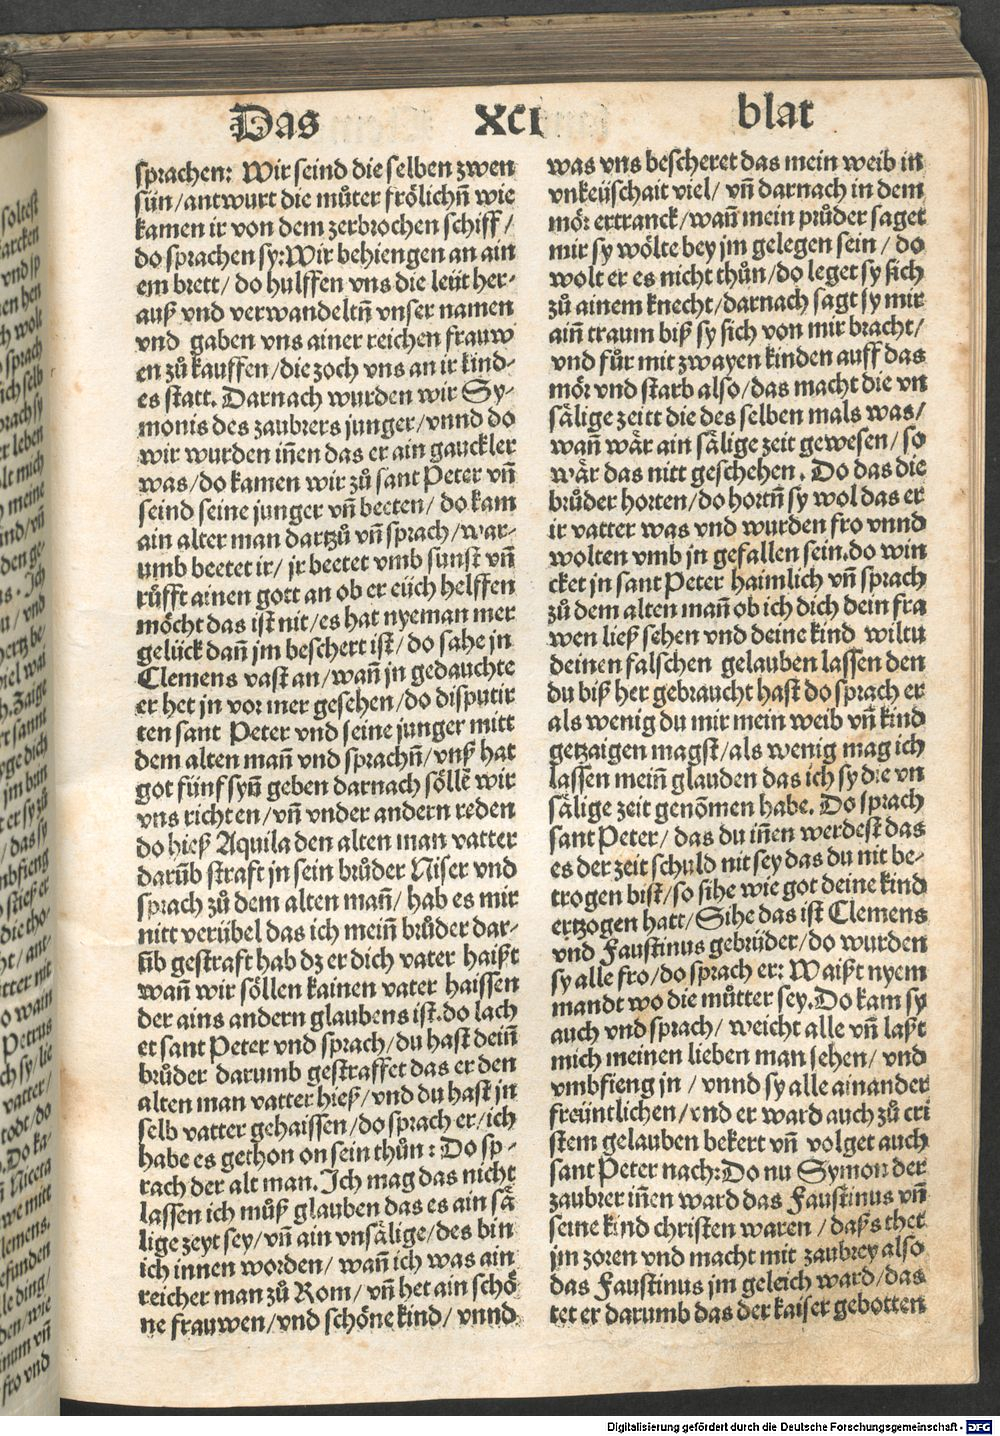 Das XCI blat
sprachen: Wir seind die selben zwen
sün/antwurt die můter frölichn̄ wie
kamen ir von dem zerbrochen schiff/
do sprachen sy:Wir behiengen an ain
em brett/ do hulffen vns die leüt her-
auß vnd verwandeltn̄ vnser namen
vnd gaben vns ainer reichen frauw
en zů kauffen/die zoch vns an ir kind-
es statt. Darnach wurden wir Sy-
monis des zaubrers junger/vnnd do
wir wurden iñen das er ain gauckler
was/do kamen wir zů sant Peter vn̄
seind seine junger vn̄ beeten/ do kam
ain alter man dartzů vn̄ sprach/war-
umb beetet ir/ jr beetet vmb sunst vn̄
růfft ainen gott an ob er eüch helffen
möcht das ist nit/es hat nyeman mer
gelück dan̄ jm beschert ist/ do sahe jn
Clemens vast an/wan̄ jn gedauchte
er het jn vor mer gesehen/do disputir
ten sant Peter vnd seine junger mitt
dem alten man̄ vnd sprachn̄/vnß hat
got fünf syn̄ geben darnach söllē wir
vns richten/vn̄ vnder andern reden
do hieß Aquila den alten man vatter
darūb straft jn sein brůder Niser vnd
sprach zů dem alten man̄/ hab es mir
nitt verübel das ich mein̄ brůder dar-
ūb gestraft hab dz er dich vater haißt
wan̄ wir söllen kainen vater haissen
der ains andern glaubens ist.do lach
et sant Peter vnd sprach/du hast dein̄
brůder darumb gestraffet das er den
alten man vatter hieß/vnd du hast jn
selb vatter gehaissen/do sprach er/ich
habe es gethon on sein thůn: Do sp-
rach der alt man. Ich mag das nicht
lassen ich můß glauben das es ain sä
lige zeyt sey/vn̄ ain vnsälige/des bin
ich innen worden/ wan̄ ich was ain
reicher man zů Rom/ vn̄ het ain schö
ne frauwen/vnd schöne kind/ vnnd
was vns bescheret das mein weib in
vnkeüschait viel/ vn̄ darnach in dem
mör ertranck/wan̄ mein průder saget
mir sy wölte bey jm gelegen sein/ do
wolt er es nicht thůn/do leget sy sich
zů ainem knecht/darnach sagt sy mir
ain̄ traum biß sy sich von mir bracht/
vnd für mit zwayen kinden auff das
mör vnd starb also/das macht die vn
sälige zeitt die des selben mals was/
wan̄ wär ain sälige zeit gewesen/so
wär das nitt geschehen. Do das die
brůder horten/do hortn̄ sy wol das er
ir vatter was vnd wurden fro vnnd
wolten vmb jn gefallen sein.do win
cket jn sant Peter haimlich vn̄ sprach
zů dem alten man̄ ob ich dich dein fra
wen ließ sehen vnd deine kind wiltu
deinen falschen gelauben lassen den
du biß her gebraucht hast do sprach er
als wenig du mir mein weib vn̄ kind
getzaigen magst/als wenig mag ich
lassen mein̄ glauden das ich sy die vn
sälige zeit genōmen habe. Do sprach
sant Peter/ das du iñen werdest das
es der zeit schuld nit sey das du nit be-
trogen bist/so sihe wie got deine kind
ertzogen hatt/Sihe das ist Clemens
vnd Faustinus gebrüder/do wurden
sy alle fro/do sprach er: Waißt nyem
mandt wo die můtter sey.Do kam sy
auch vnd sprach/ weicht alle vn̄ laßt
mich meinen lieben man sehen/ vnd
vmbfieng jn / vnnd sy alle ainander
freüntlichen/vnd er ward auch zů cri
stem gelauben bekert vn̄ volget auch
sant Peter nach:Do nu Symon der
zaubrer iñen ward das Faustinus vn̄
seine kind christen waren / daßs thet
jm zoren vnd macht mit zaubrey also
das Faustinus jm geleich ward/das
tet er darumb das der kaiser gebotten
Digitalisierung gefördert durch die Deutsche Forschungsgemeinschaft - DFG